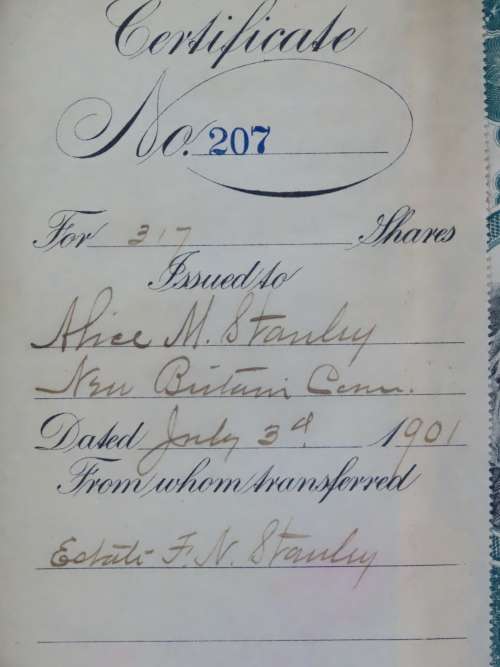 Certificate
No. 207
For 317 Shares
Issued to
Alice M. Stanley
New Britain Conn.
Dated July 3d. 1901
From whom transferred
Estate F. N. Stanley